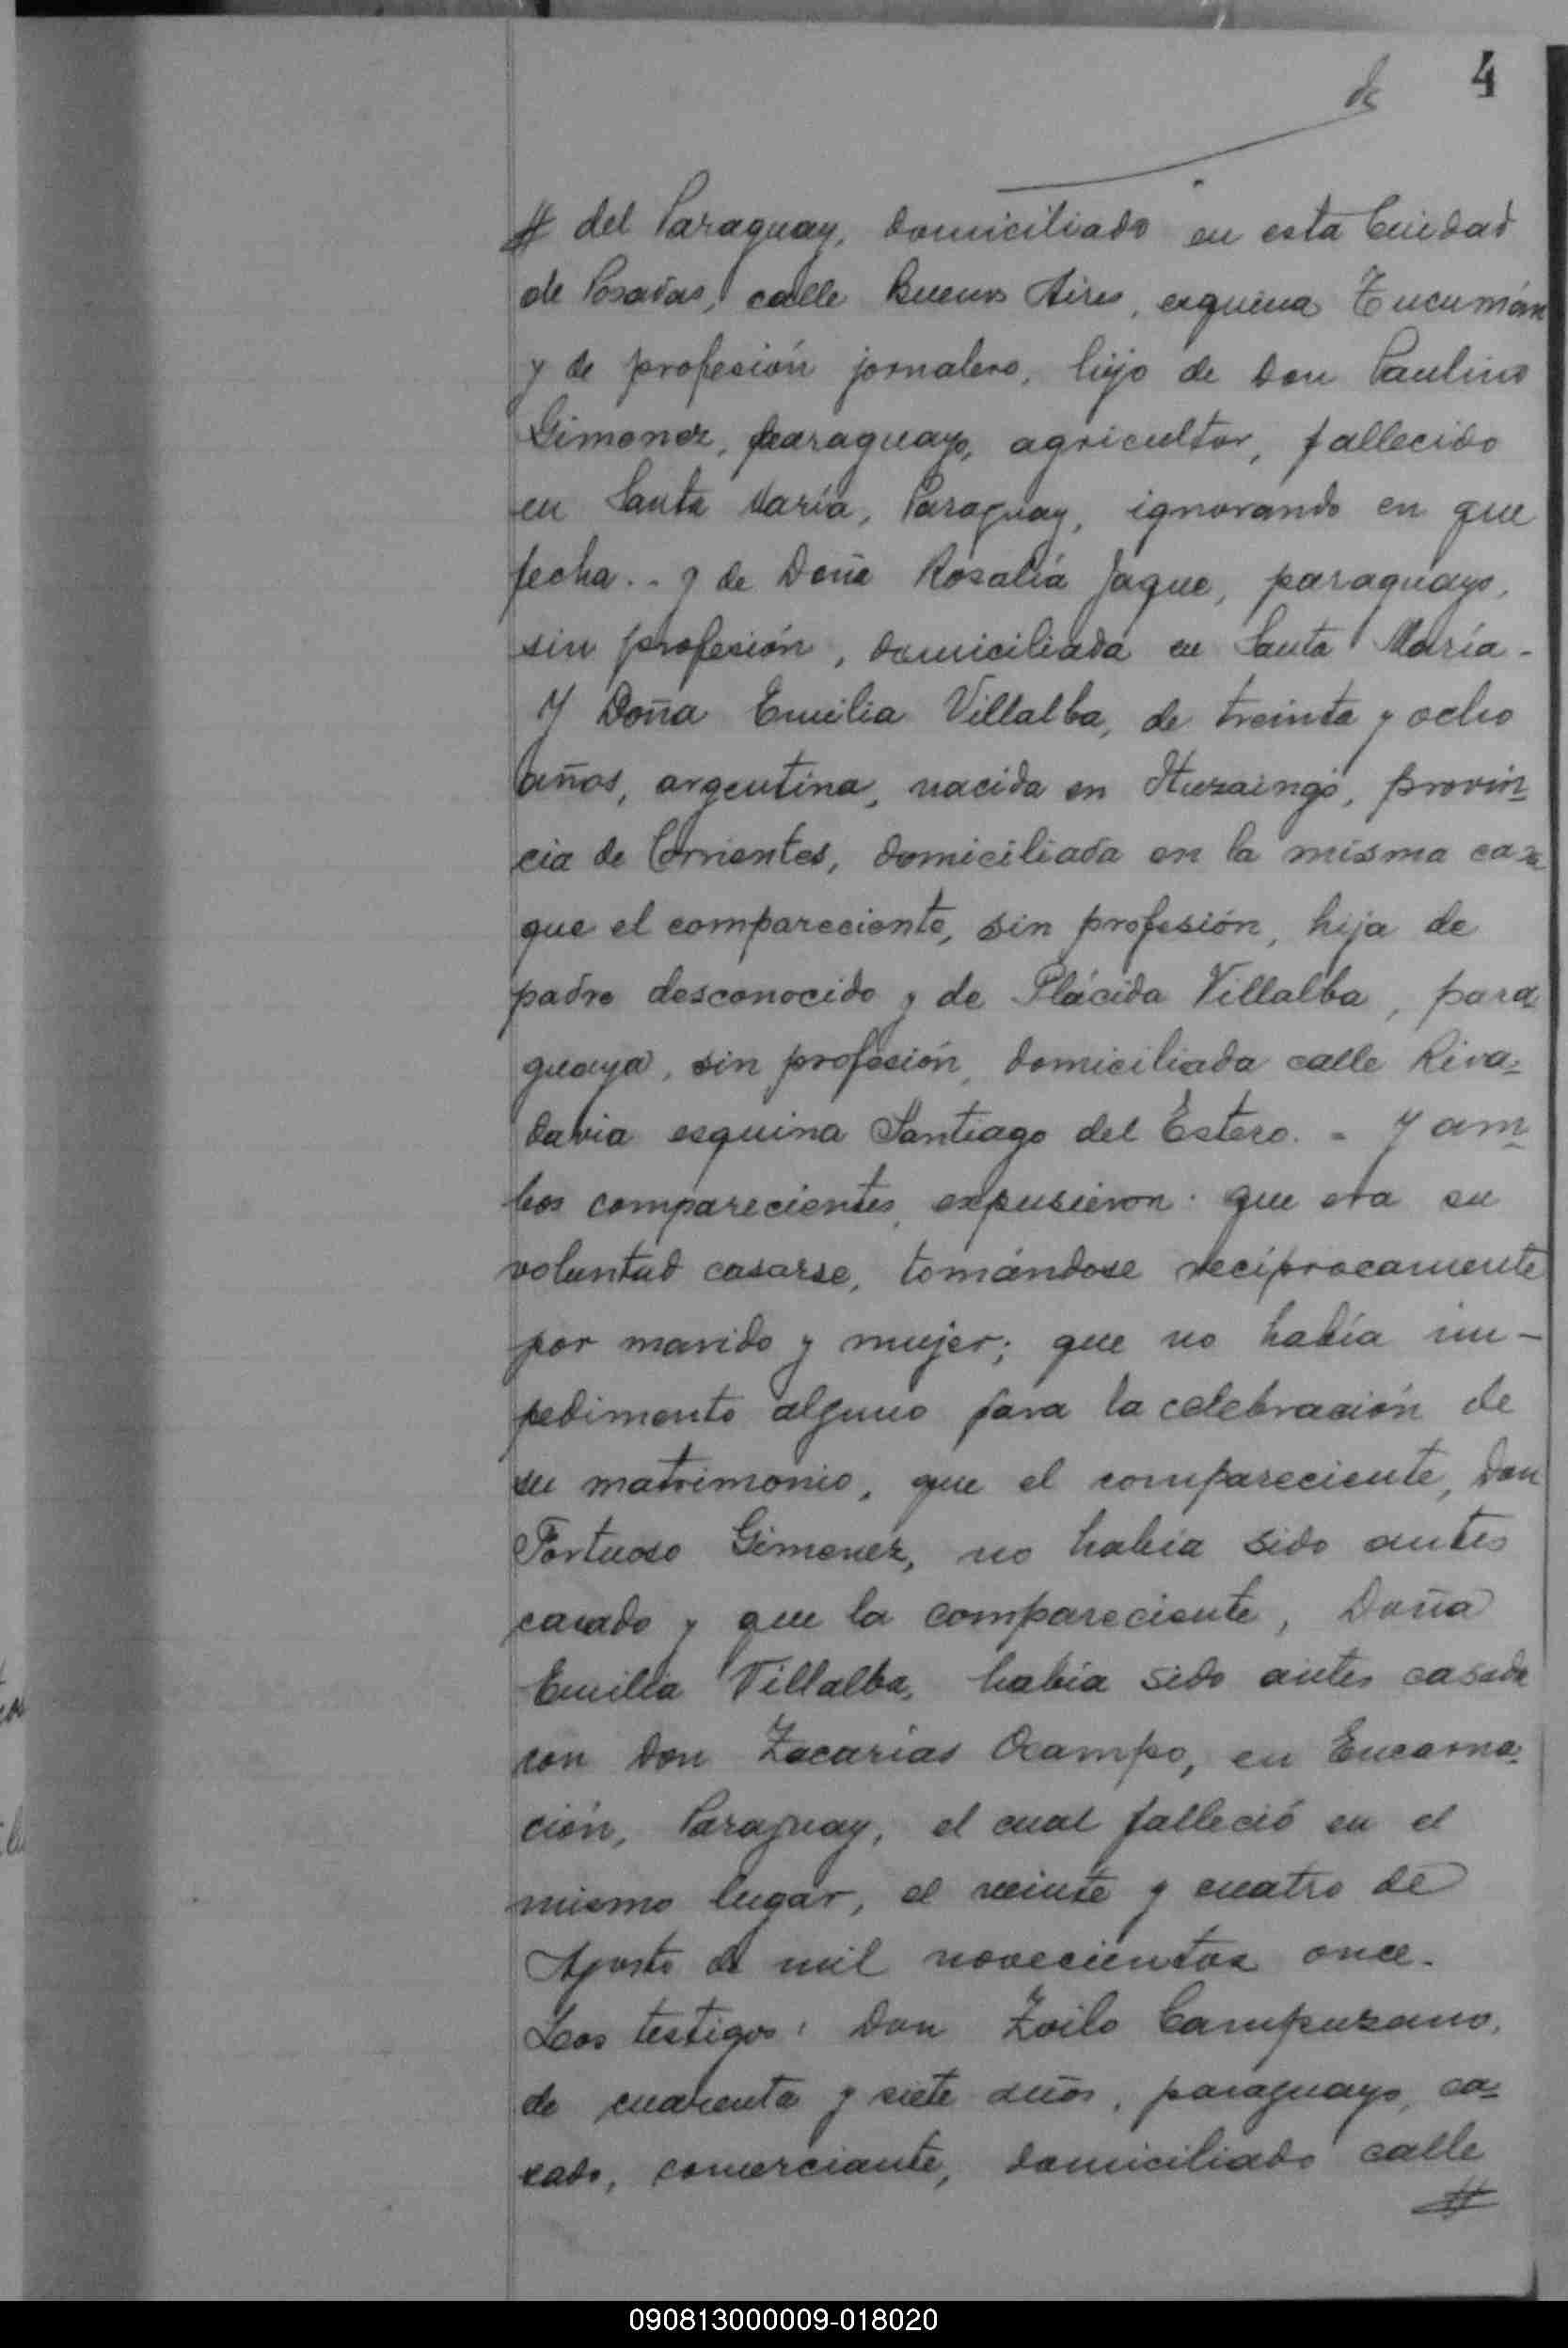 de 4
# del Paraguay, domiciliado en esta Ciudad
de Posadas, calle Buenos Aires, esquina Tucumán
y de profesión jornalero, hijo de Don Paulino
Gimenez, paraguayo, agricultor, fallecido
en Santa María, Paraguay, ignorando en que
fecha.. y de Doña Rosalía Jaque, paraguaya,
sin profesión, domiciliada en Santa María.-
Y Doña Emilia Villalba, de treinta y ocho
años, argentina, nacida en Ituzaingó, provin=
cia de Corrientes, domiciliada en la misma casa
que el compareciente, sin profesión, hija de
padre desconocido y de Plácida Villalba, para=
guaya, sin profesión, domiciliada calle Riva=
davia esquina Santiago del Estero. = Y am=
bos comparecientes, expusieron: que era su
voluntad casarse, tomándose recíprocamente
por marido y mujer; que no había im-
pedimento alguno para la celebración de
su matrimonio, que el compareciente, Don
Fortuoso Gimenez, no había sido antes
casado y que la compareciente, Doña
Emilia Villalba, había sido antes casada
con Don Zacarías Ocampo, en Encarna=
ción, Paraguay, el cual falleció en el
mismo lugar, el veinte y cuatro de
Agosto de mil novecientos once.
Los testigos: Don Zoilo Campuzano,
de cuarenta y siete años, paraguayo, ca=
sado, comerciante, domiciliado calle
#
090813000009-018020